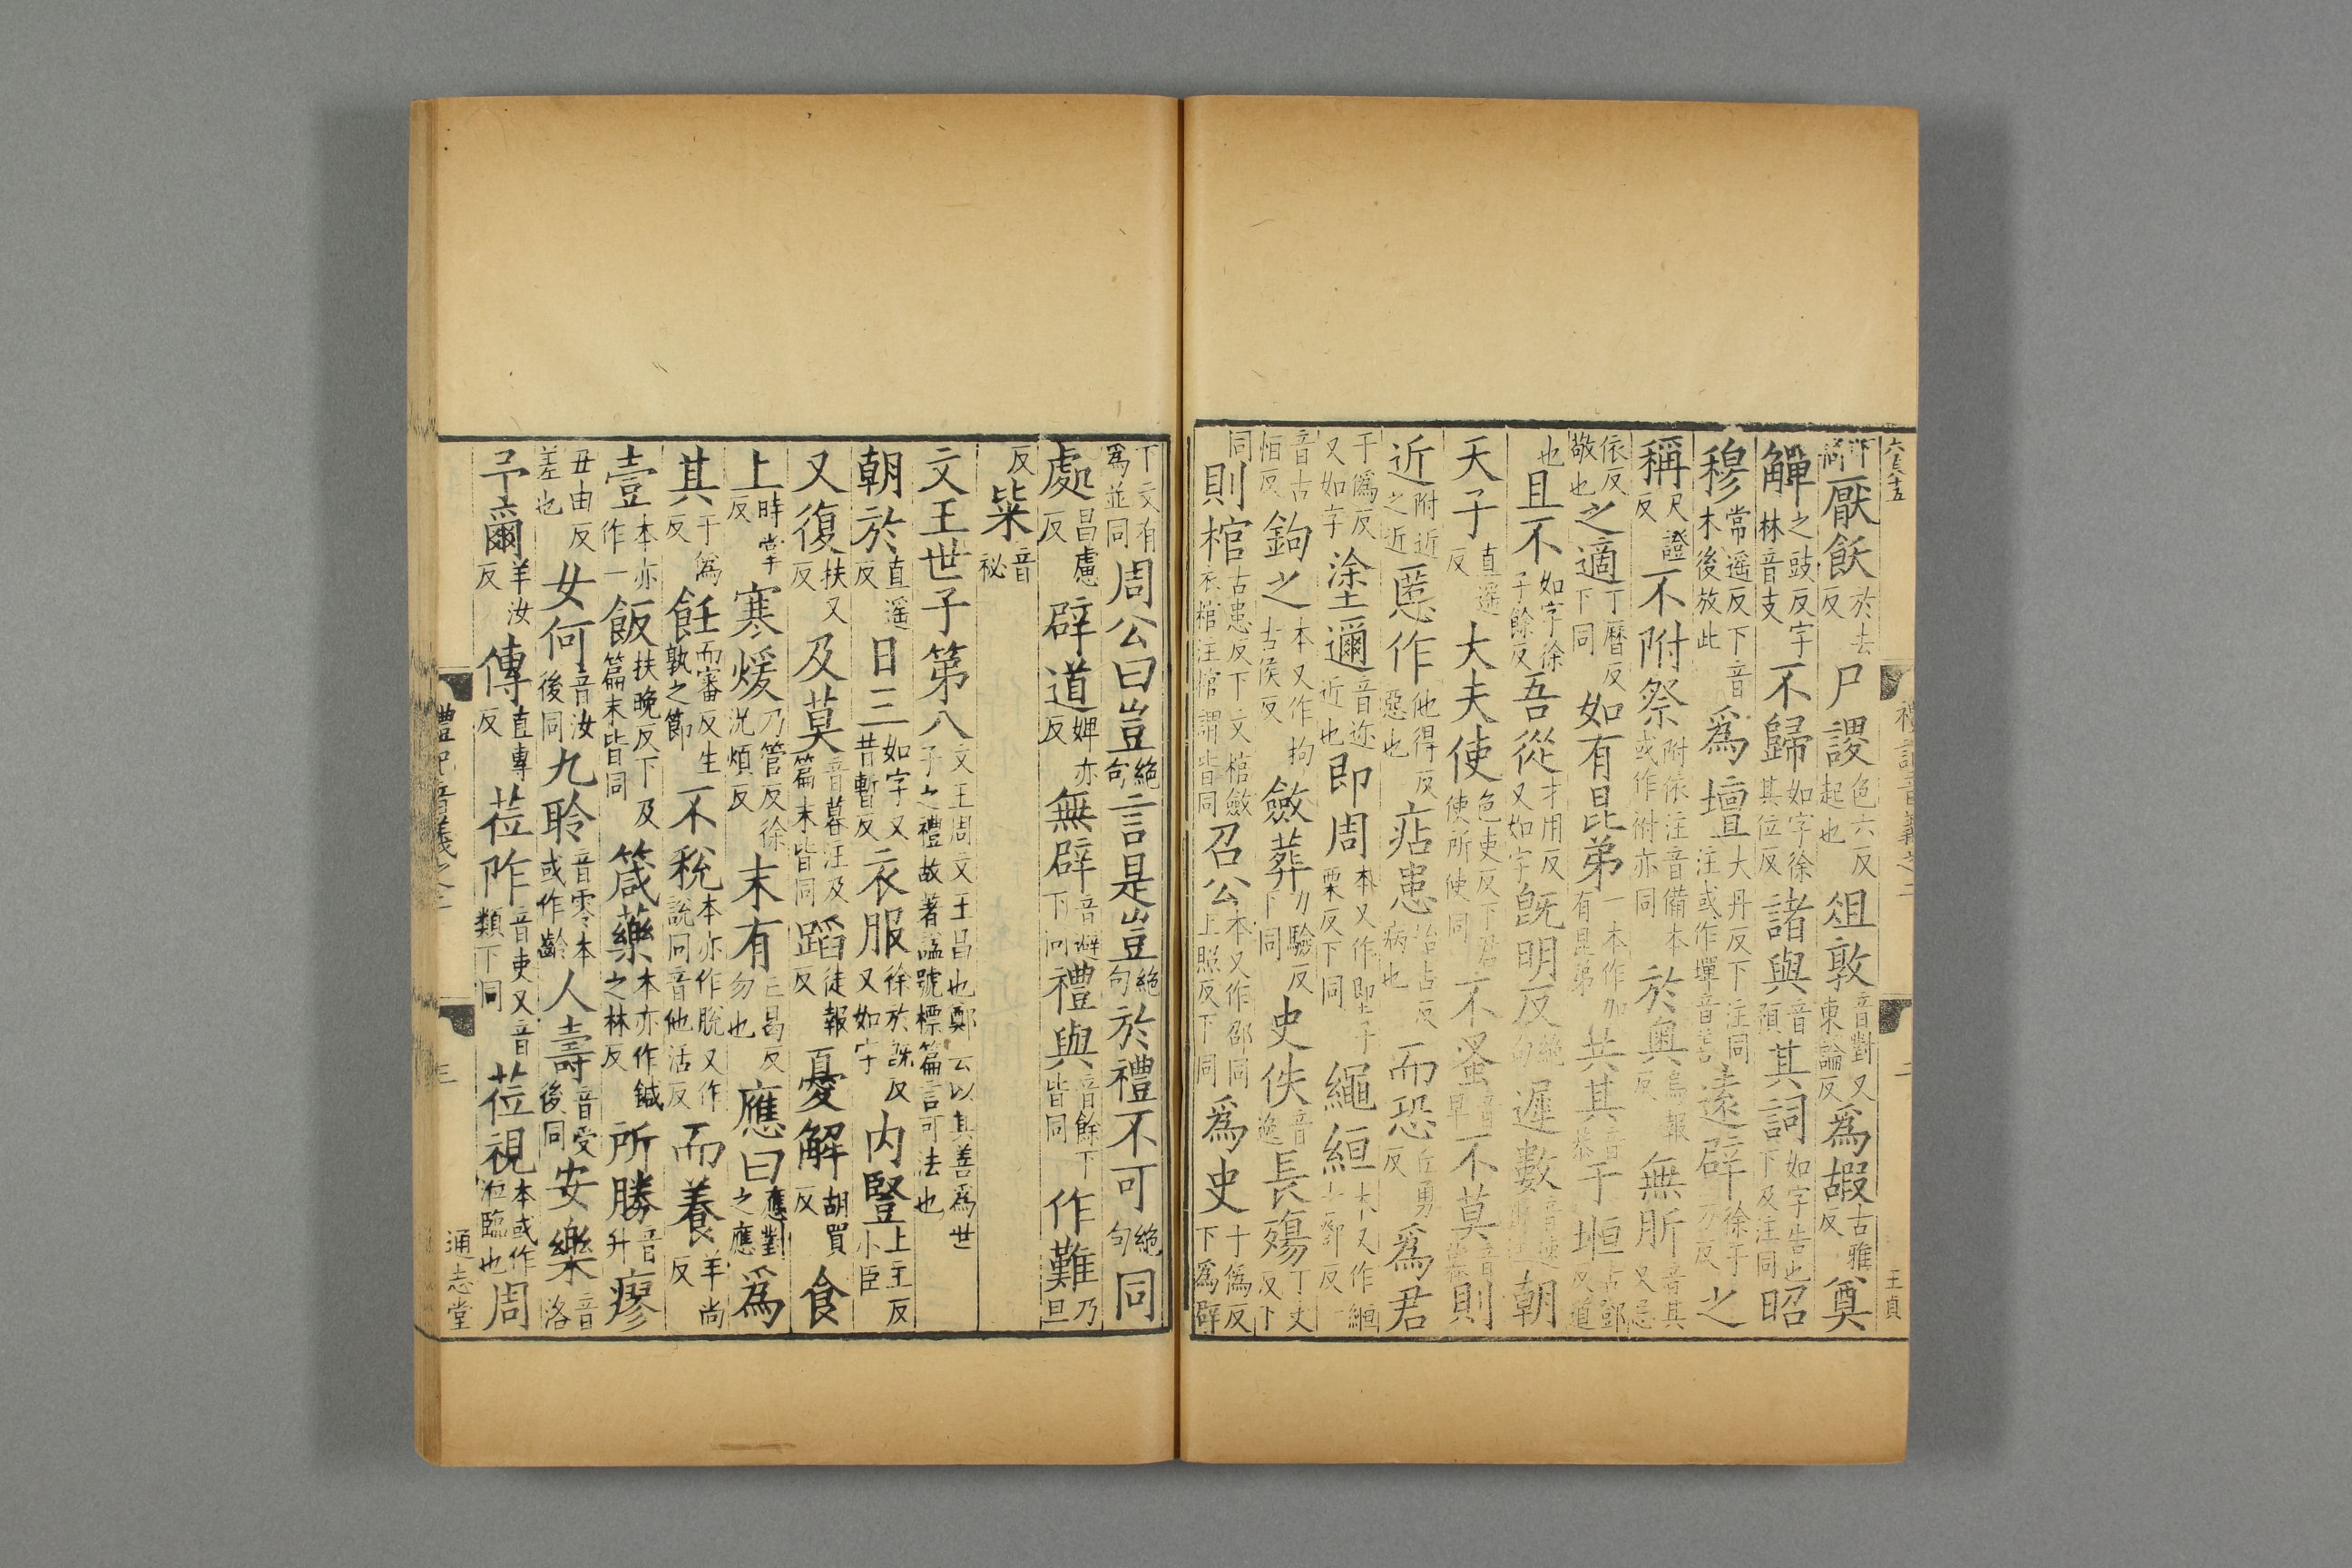 六百十五
禮記音義之二
二
王貞
厭飫於去反尸謖色六反起也俎敦音對又東論反為嘏古雅反奠
觶之豉反字林音支不歸如字徐其位反諸與音預其詞如字告也下及注同昭
穆常遥反下音木後放此為壇大丹反下注同注或作墠音善遠辟徐于万反之
稱尺證反不祔祭附依注音備本或作祔亦同於奧烏報反無肵音其又忌
依反敬也之適丁曆反下同如有昆弟一本作加有昆弟共其音恭于垣古鄧反又道
也且不如字徐子餘反吾從才用反又如字既明反句絕遲數音速朝
天子直遥反大夫使色吏反下君使所使同不蚤音早不莫音暮則
近附近之近慝作他得反惡也痁患始占反病也而恐丘勇反為君
于偽反又如字塗邇音迩近也即周本又作堲子栗反下同繩絙本又作緪古鄧反一
音古恒反鉤之本又作拘古侯反斂葬力驗反下同史佚音逸長殤丁丈反下
同則棺古患反下文棺斂衣棺注棺謂皆同召公本又作邵同上照反下同為史于偽反下為辟
下文有為並同周公曰豈絕句言是豈絕句於禮不可絕句同
處昌慮反辟道婢亦反無辟音避下同禮與音餘下皆同作難乃旦
反棐音祕
文王世子第八文王周文王昌也鄭云以其善為世子之禮故著謚號標篇言可法也
朝於直遥反日三如字又息暫反衣服徐於既反又如字内豎上主反小臣
又復扶又反及莫音暮注及篇末皆同蹈徒報反憂解胡買反食
上時掌反寒煖乃管反徐況煩反末有亡曷反勿也應曰應對之應為
其于偽反飪而審反生孰之節不稅本亦作脫又作說同音他活反而養羊尚反
壹本亦作一飯扶晚反下及篇末皆同箴藥本亦作鍼之林反所勝音升瘳
丑由反差也女何音汝後同九聆音零本或作齡人壽音受後同安樂音洛
予爾羊汝反傳直專反莅阼音吏又音類下同莅視本或作涖臨也周
禮記音義之二
三
通志堂